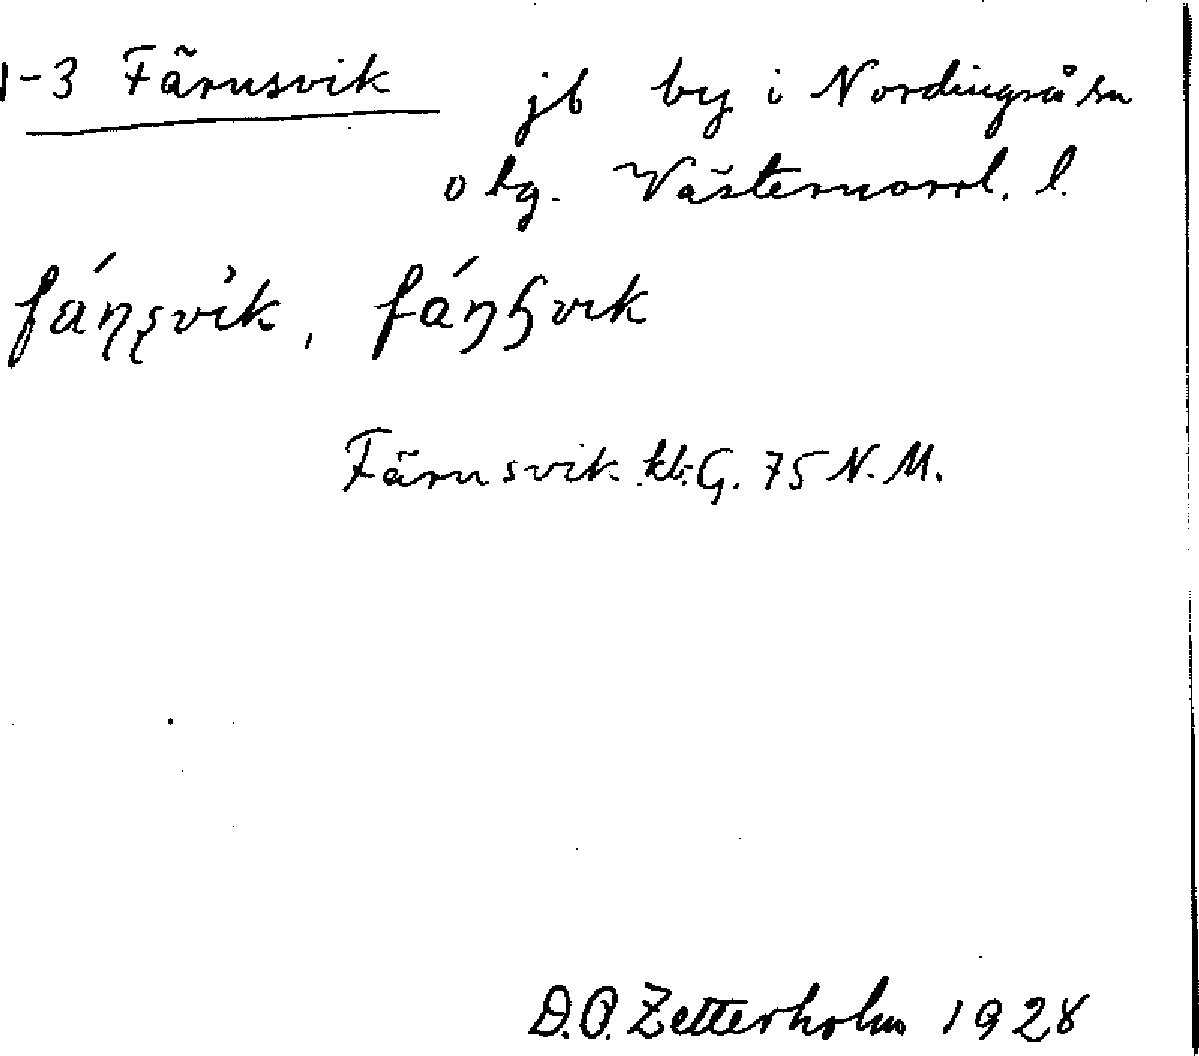 1-3 Färnsvik jb by i Nordingrå sn
o tg. Västernorrl. l.
Färnsvik kb: G. 75 N. M.
D.O. Zetterholm 1928